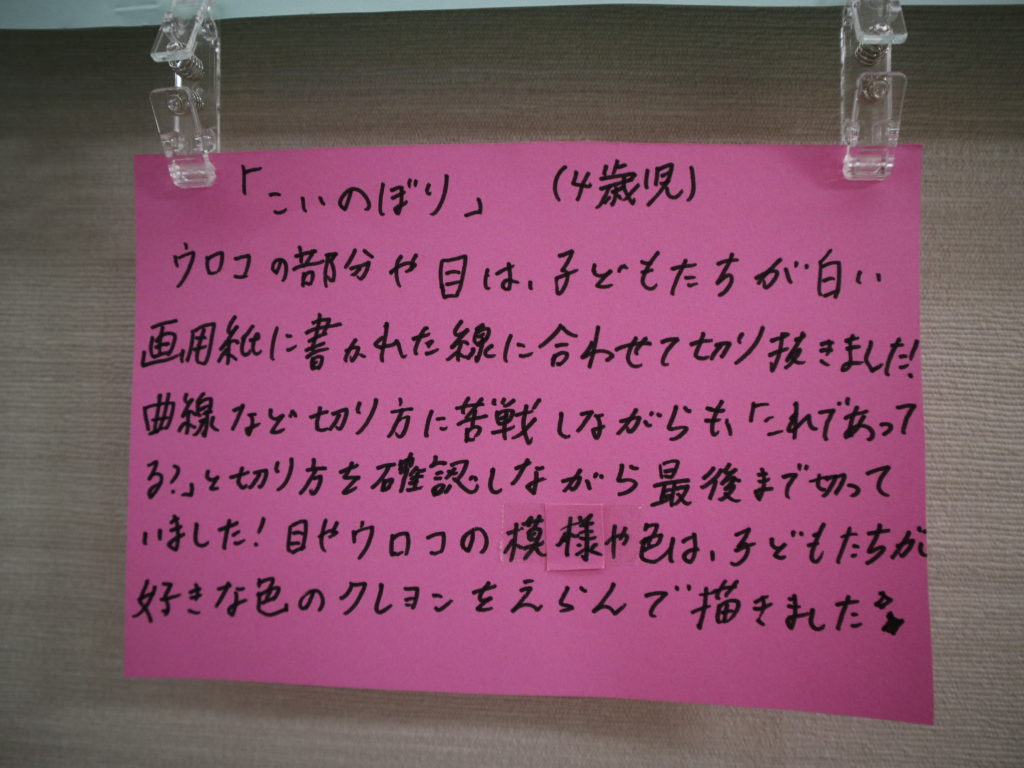 「こいのぼり」 (4歳児)
ウロコの部分や目は、子どもたちが白い
画用紙に書かれた線に合わせて切り抜きました!
曲線など切り方に苦戦しながらも、「これであって
る?」と切り方を確認しながら最後まで切って
いました!目やウロコの模様や色は、子どもたちが
好きな色のクレヨンをえらんで描きました